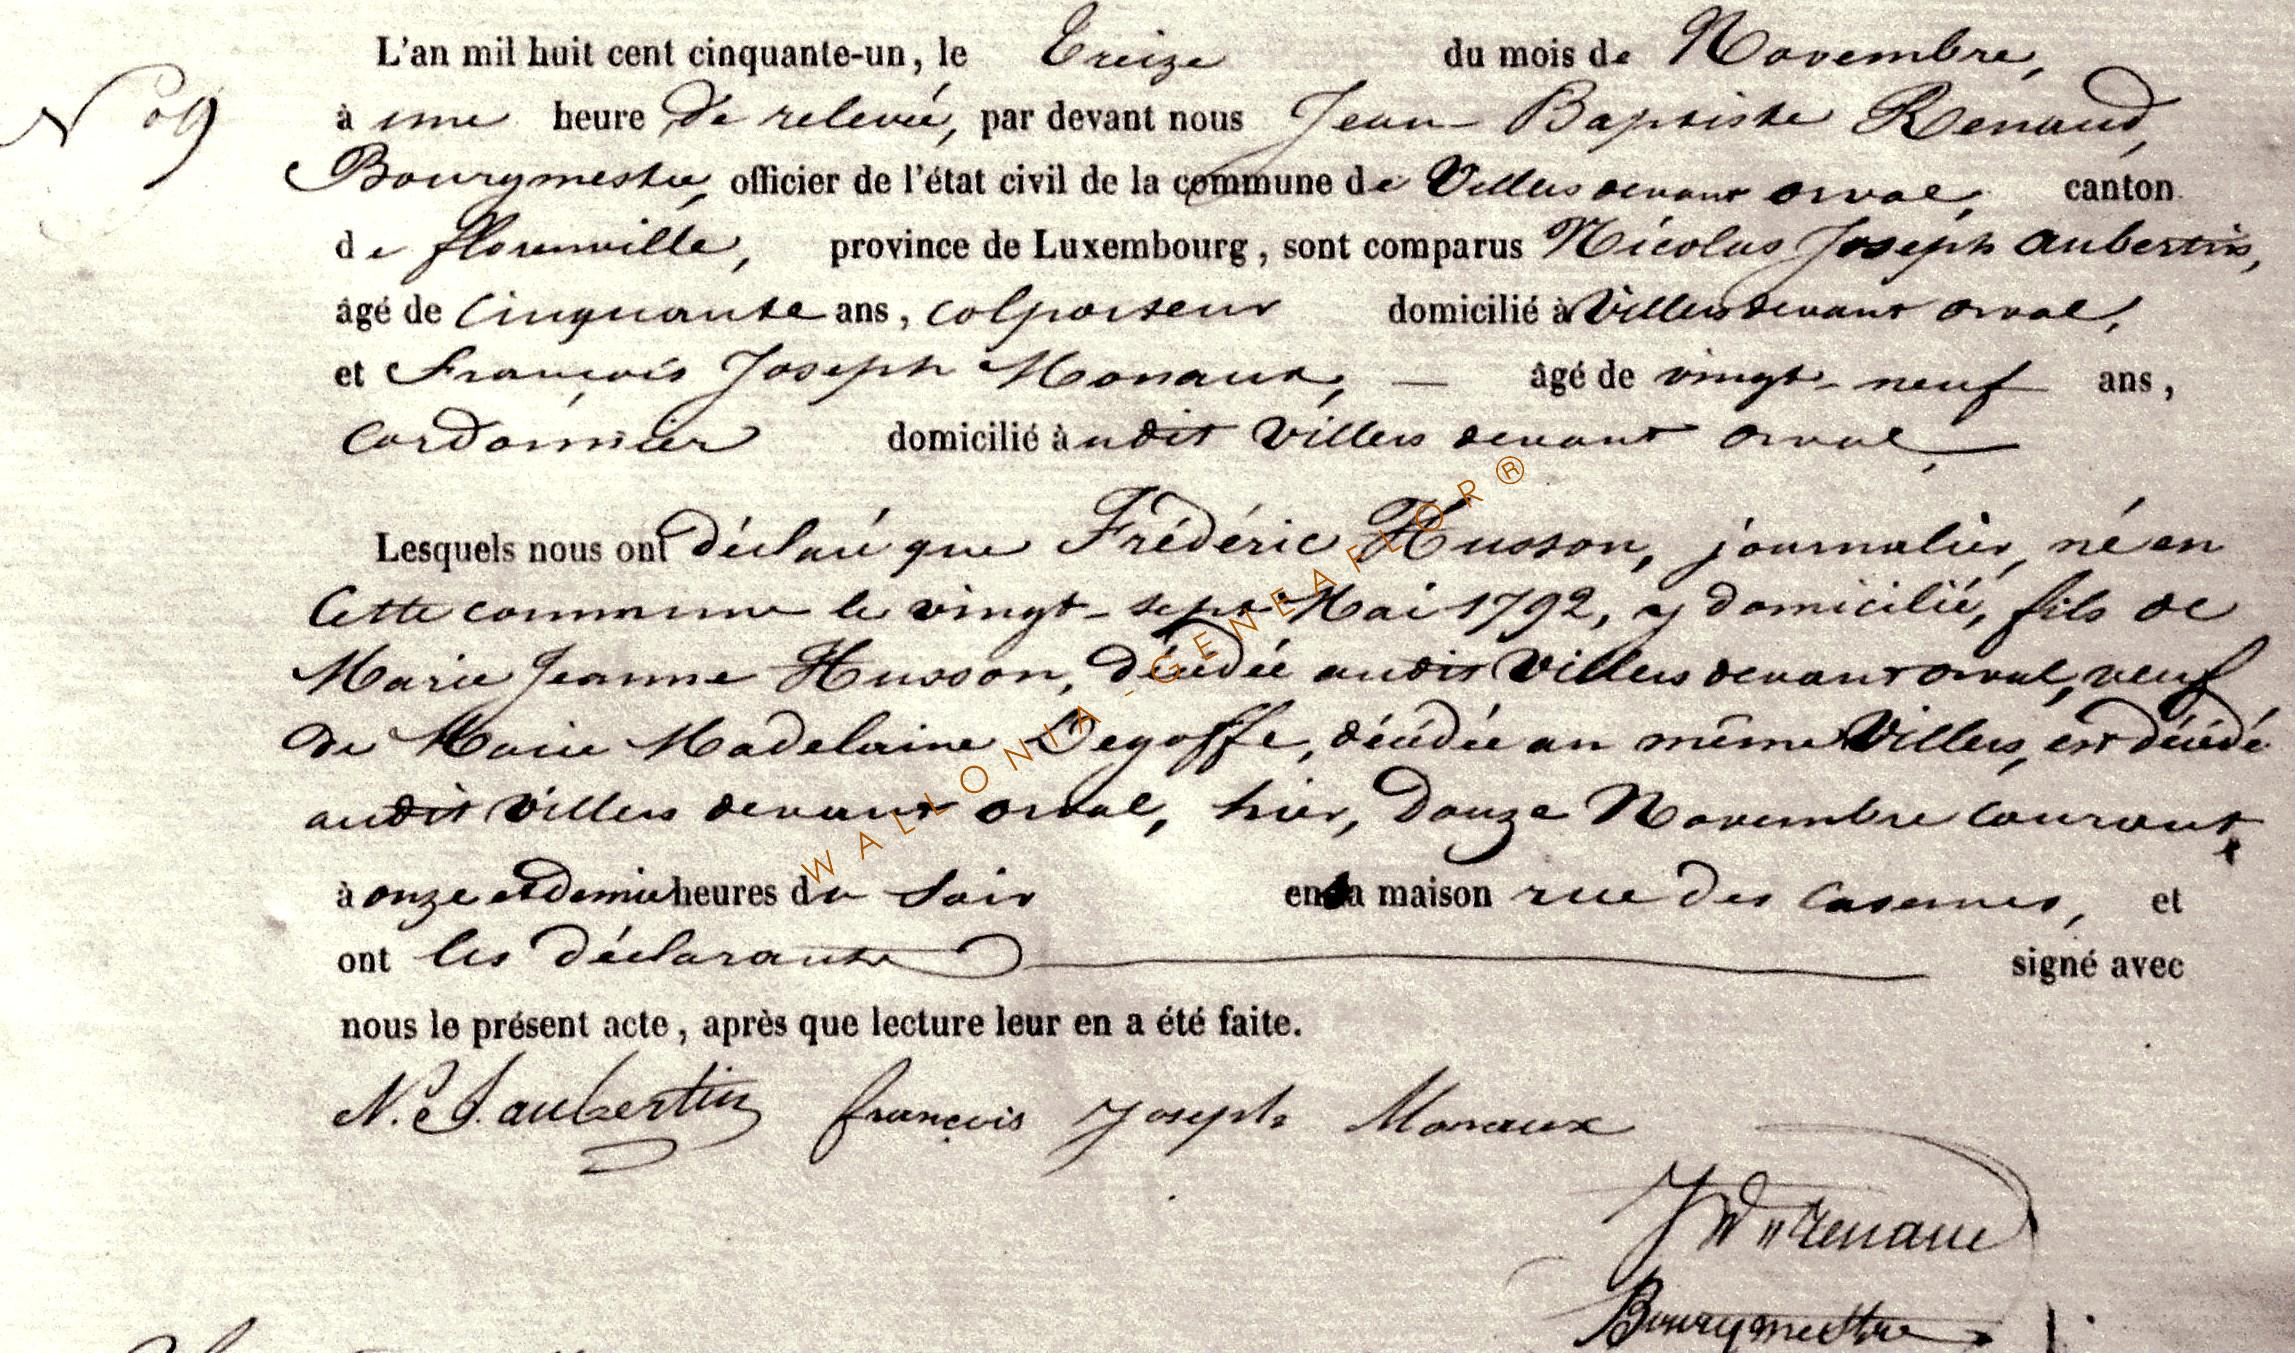 L'an mil huit cent cinquante-un, le Treize du mois de Novembre,
N° 9
à une heure de relevée, par devant nous Jean Baptiste Renaud,
Bourgmestre, officier de l'état civil de la commune de Villers devant orval, canton
de florenville, province de Luxembourg, sont comparus Nicolas Joseph aubertin,
âgé de Cinquante ans, colporteur domicilié à Villers devant orval,
et François Joseph Monaux, — âgé de vingt-neuf ans,
Cordonnier domicilié audit Villers devant orval,
Lesquels nous ont déclaré que Frédéric Husson, journalier, né en
Cette commune le vingt-sept Mai 1792, y domicilié, fils de
Marie Jeanne Husson, décédée audit Villers devant orval, veuf
de Marie Madelaine Degoffe, décédée au même Villers, est décédé
audit Villers devant orval, hier, Douze Novembre courant,
à onze et demie heures du Soir en sa maison rue des Casernes, et
ont les déclarants signé avec
nous le présent acte, après que lecture leur en a été faite.
N. J. aubertin françois Joseph Monaux
Renaud
Bourgmestre
WALLONIA-GENEAFLOR®